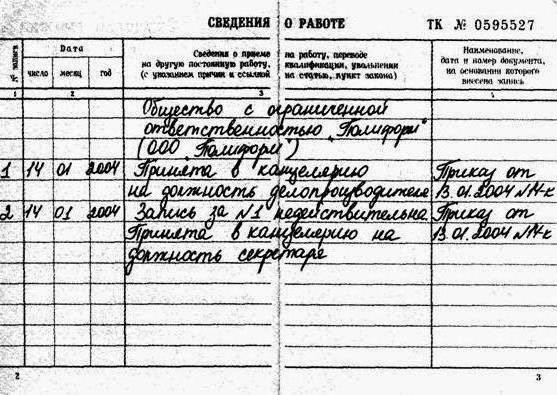 СВЕДЕНИЯ О РАБОТЕ ТК № 0595527
№ записи
Дата
Сведения о приеме на работу, переводе
на другую постоянную работу, квалификации, увольнении
(с указанием причин и ссылкой на статью, пункт закона)
Наименование,
дата и номер документа,
на основании которого
внесена запись
число месяц год
1 2 3 4
Общество с ограниченной
ответственностью „Полиформ"
(ООО „Полиформ")
1 14 01 2004 Принята в канцелярию Приказ от
на должность делопроизводителя 13.01.2004 №14-к
2 14 01 2004 Запись за №1 недействительна Приказ от
Принята в канцелерию на 13.01.2004 №14-к
должность секретаря
2 3